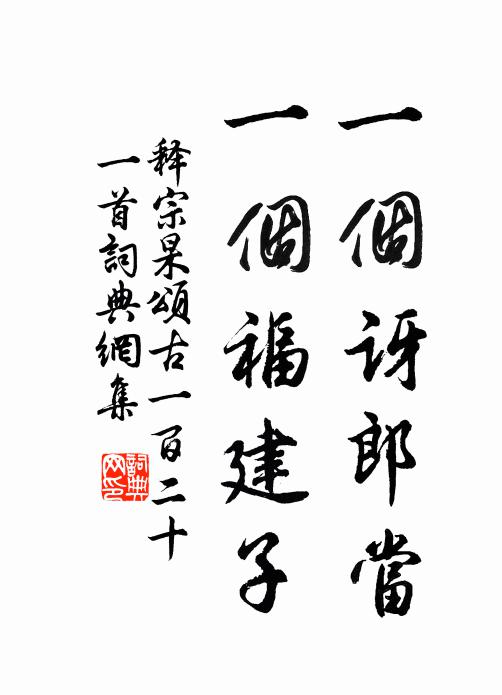 一個訝郎當
一個福建子
释宗杲頌古一百二十
一首詞典網集
詞典网印